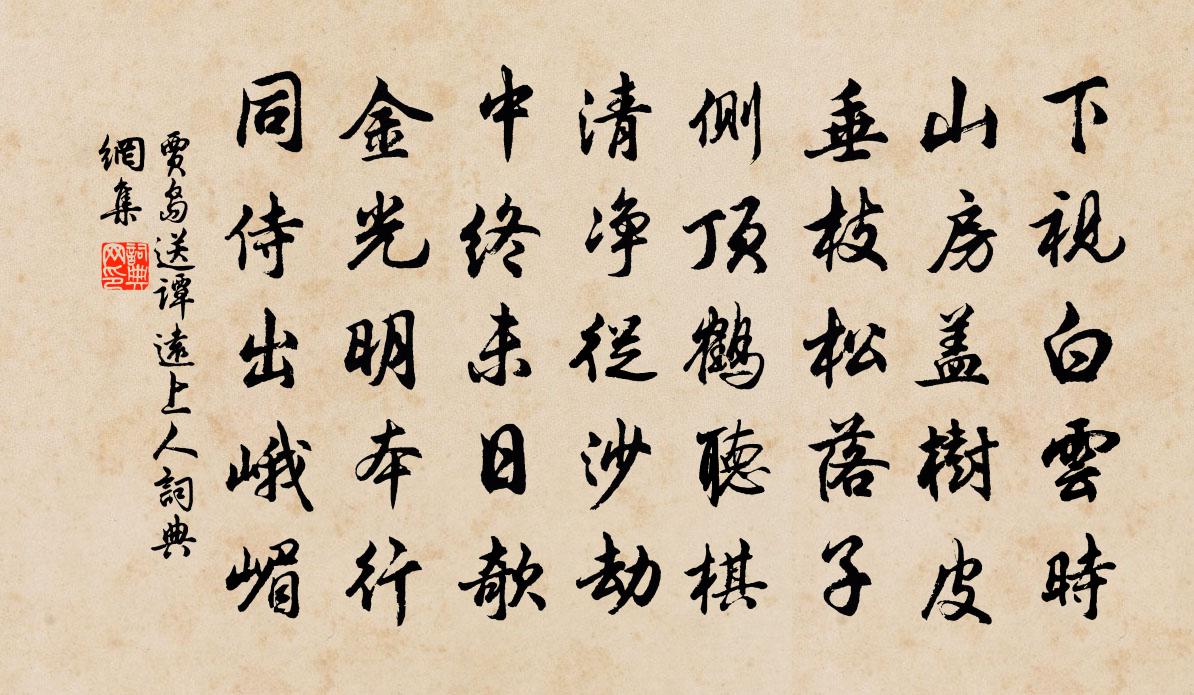 下視白雲時
山房蓋樹皮
垂枝松落子
側頂鶴聽棋
清淨從沙劫
中終未日欹
金光明本行
同侍出峨嵋
賈島送譚遠上人詞典
網集
詞典
网印